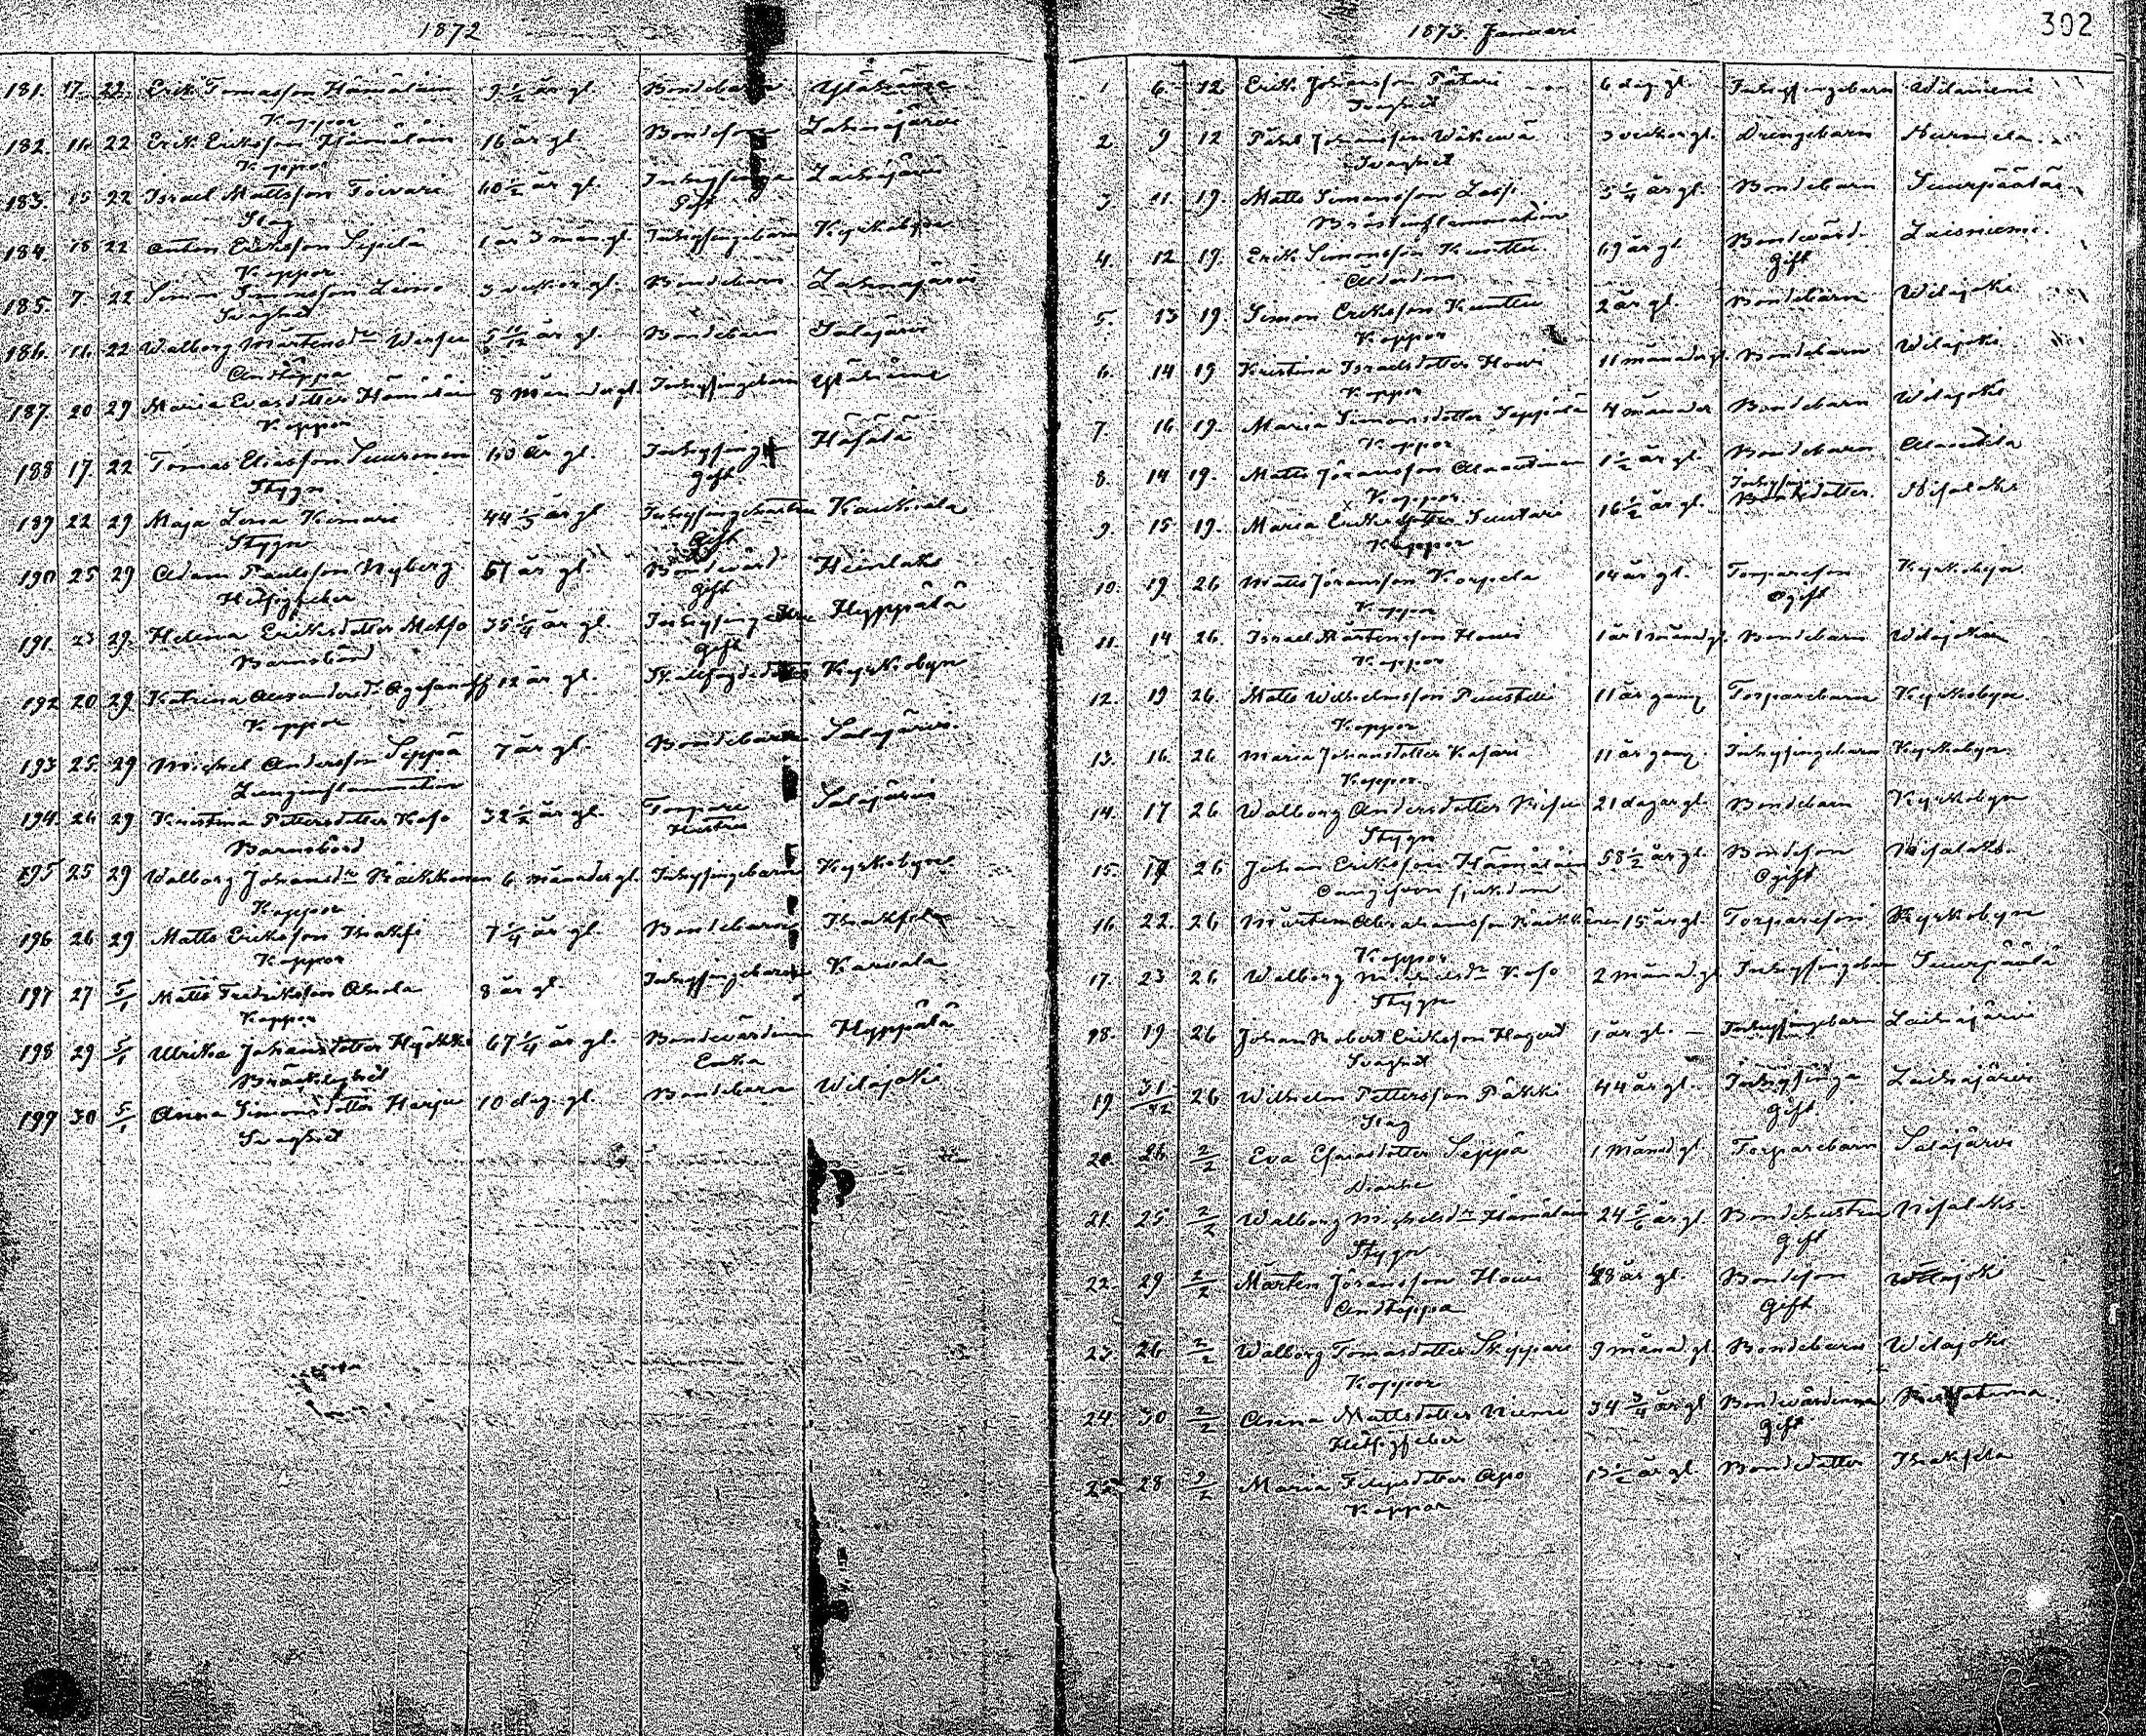 1872
181. 17. 22. Erik Tomasson Hämäläin 9 1/2 år gl. Bondebarn Yläkänne
Koppor
182. 11. 22 Erik Eriksson Hämäläin 16 år gl. Bondeson Lahnajärvi
Koppor
183. 15 22 Israel Mattsson Toivari 60 1/2 år gl. Inhysinge
Slag Gift
184. 18 22 Anton Eriksson Sepelä 1 år 3 mån gl. Inhysingebarn Kyrkobyn
Koppor
185. 7. 22 Simon Simonsson Leino 3 veckor gl. Bondebarn Lahnajärvi
Svaghet
186. 11. 22 Walborg Mårtensdr 5 11/12 år gl. Bondebarn Salajärvi
Andtäppa
187. 20 29 Maria Evasdotter Hämäläin 8 månader gl. Inhysingebarn Yläkänne
Koppor
188 17. 22 Tomas Eliasson Suuronen år gl. Inhysing
Stygn Gift
189 22 29 Maja Lena Kiimari 44 1/3 år gl. Inhysinghustru Kaukiala
Stygn Gift
190 25 29 Adam Paulsson Nyberg 67 år gl. Bondevärd Heinlaks
Hetsig feber Gift
191 23 29. Helena Eriksdotter Metso 35 1/4 år gl. Hyppälä
Barnsbörd Gift
192 20 29 Katrina Alexandersdr Agafanoff 12 år gl. Kyrkobyn
Koppor
193 25. 29 Michel Andersson Seppä 7 år gl. Bondebarn Salajärvi.
Lunginflammation
194. 26 29 Kristina Pettersdotter Kaso 32 1/2 år gl. Torpare Salajärvi
Barnsbörd Hustru
195 25 29 Walborg Johansdr Räikkönen 6 månader gl. Inhysingebarn Kyrkobyn
Koppor
196 26 29 Matts Eriksson Thakfi 7 1/4 år gl. Bondebarn Thakfela
Koppor
197 27 5/1 Matts Fredriksson Ahola 8 år gl. Inhysingebarn Karvala
Koppor
198 29. 5/1 Ulrika Johansdotter 67 1/4 år gl. Bondevärdinna Hyppälä
Bräcklighet Enka
199 30 5/1 Anna Simonsdotter Harju 10 dag. gl. Bondebarn Wilajoki
Svaghet
1873. Januari
302
1 6. 12 Erik Johansson Pätäri 6 dag. gl. Inhysingebarn Wilaniemi
Svaghet
2 9 12 Påhl Johansson Wäkevä 3 veckor gl. Drengebarn Nurmela.
Svaghet
3. 11. 19. Matts Simonsson Lassi 5 1/4 år gl. Bondebarn Suurpäälä
Bröstinflammation
4. 12 19. Erik Simonsson Kunttu 69 år gl Bondevärd. Laisniemi.
Ålderdom Gift
5. 13 19. Simon Eriksson Kunttu 2 år gl. Bondebarn Wilajoki
Koppor
6. 14 19 Kristina Israelsdotter Howi 11 månader gl. Bondebarn Wilajoki.
Koppor
7. 16 19. Maria Simonsdotter Seppälä 4 månader Bondebarn Wilajoki
Koppor
8. 14 19. Matts Jöransson 1 1/2 år gl. Bondebarn
Koppor
9. 15 19. Maria Eriksdotter Suutari 16 1/2 år gl. Nisalaks
Koppor
10. 19 26 Matts Jöransson Korpela 14 år gl. Torpareson Kyrkobyn
Koppor Ogift
11. 14 26. Israel Mårtensson Howi 1 år 1 månad gl. Bondebarn Wilajoki
Koppor
12. 19 26. Matts Wilhelmsson Puustelli 11 år gam. Torparebarn Kyrkobyn
Koppor
13. 16. 26 Maria Johansdotter Kasari 11 år gam. Inhysingebarn Kyrkobyn
Koppor.
14. 17 26 Walborg Andersdotter 21 dagar gl. Bondebarn Kyrkobyn
Stygn
15. 17 26 Johan Eriksson Hämäläin 58 1/2 år gl. Bondeson Nisalaks.
Oangifven sjukdom Ogift
16 22. 26 Mårten Abrahamsson Räikkönen 15 år gl. Torpareson Kyrkobyn
Koppor
17. 23 26 Walborg Michelsdr Kaso 2 månad. gl Inhysingebarn Suurpäälä
Stygn
18. 19 26 Johan Robert Eriksson Hagert 1 år gl. — Inhysingebarn
Svaghet
19 31/12 26 Wilhelm Pettersson Päkki 44 år gl. Inhysinge
Slag Gift
20. 26 2/2 Eva Esaiasdotter Seppä 1 månad gl. Torparebarn Salajärvi
Diarhe
21. 25. 2/2 Walborg Michelsdr Hämäläin 24 5/6 år gl. Bondehustru Nisalaks.
Stygn Gift
22. 29 2/2 Mårten Jöransson Howi år gl. Bondeson Wilajoki
Andtäppa Gift
23. 26 2/2 Walborg Tomasdotter Skippari 9 månad. gl. Bondebarn Wilajoki
Koppor
24. 30 2/2 Anna Mattsdotter Niemi 34 3/4 år gl Bondevärdinna
Hetsig feber Gift
25. 28 9/2 Maria Filipsdotter 13 1/2 år gl. Bondedotter Thakfela
Koppor